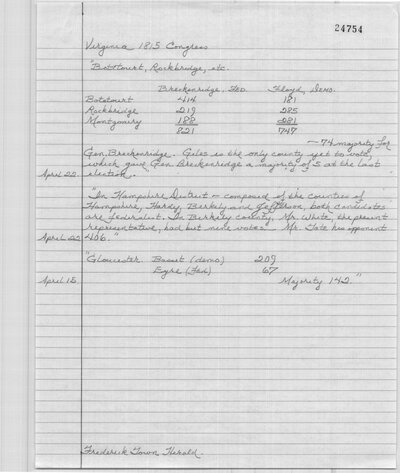 24754
Virginia 1815 Congress
"Botetourt, Rockbridge, etc.
Breckenridge, Fed. Floyd, Demo.
Botetourt 414 181
Rockbridge 219 285
Montgomery 188 281
821 747
— 74 majority for
Gen. Breckenridge. Giles is the only county yet to vote,
which gave Gen. Breckenridge a majority of 5 at the last
April 22 election."
"In Hampshire District — composed of the counties of
Hampshire, Hardy, Berkely and Jefferson, both candidates
are federalist. In Berkely county, Mr. White, the present
representative, had but nine votes — Mr. Tate his opponent
April 22 406."
"Gloucester Basset (demo) 209
Eyre (Fed) 67
April 15 Majority 142."
Frederick Town Herald.